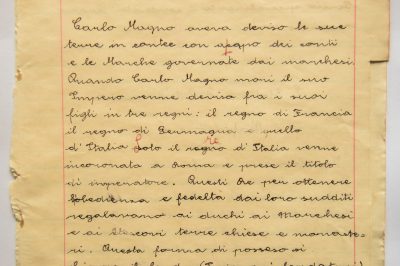 Carlo Magno aveva deviso le sue
terre in contee con a capo dei conti
e le Marche governate dai marchesi.
Quando Carlo Magno morì il suo
Impero venne devisa fra i suoi
figli in tre regni: il regno di Francia
il regno di Germagna e quello
d'Italia Solo il regno d'Italia venne
incoronata a Roma e prese il titolo
di imperatore. Questi Re per ottenere
obbedienza e fedeltà dai loro sudditi
regalavano ai duchi ai Marchesi
e ai Vescovi terre chiese e monaste-
ri. Questa forma di possesso si